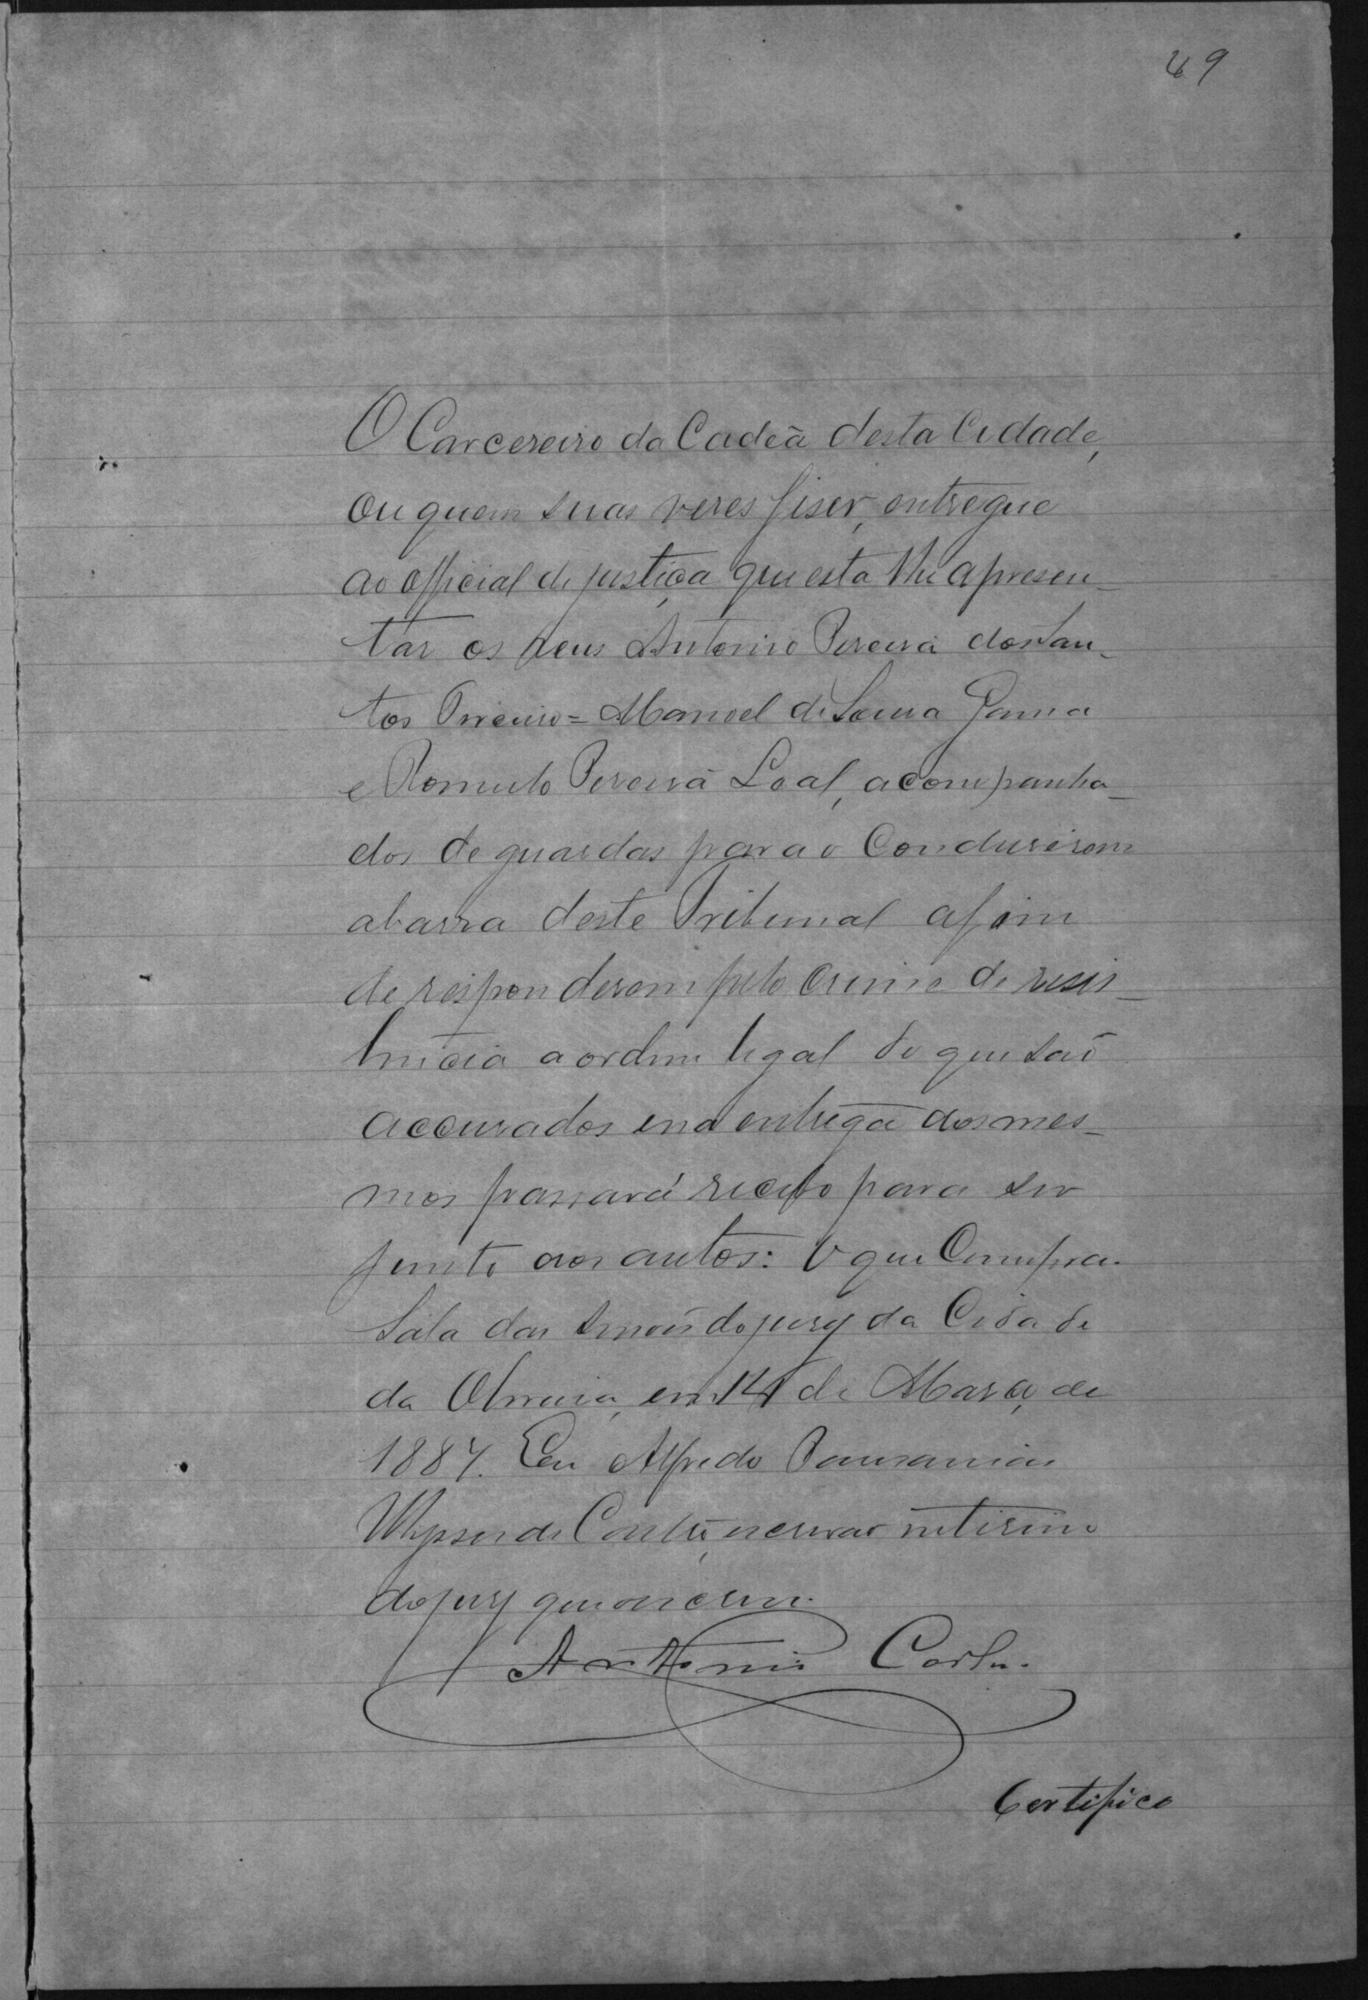 49
O Carcereiro da Cadeã desta Cidade,
ou quem suas veses fiser, entregue
ao official de justiça que esta lhe apresen-
tar os reus Antonio Pereira dos San-
tos = Manoel de Sousa Gama
e Romulo Pereira Leal, acompanha-
dos de guardas para o condusirem
a barra deste Tribunal afim
de responderem pelo crime de resis-
tencia a ordem legal de que saõ
accusados e na entrega dos mes-
mos passará recibo para ser
junto aos autos: O que Cumpra.
Sala das do jury da Cidade
da em 14 de Março de
1887. Eu Alfredo Pausanias
de escrivaõ interino
do jury que o escrevi.
Antonio
Certifico